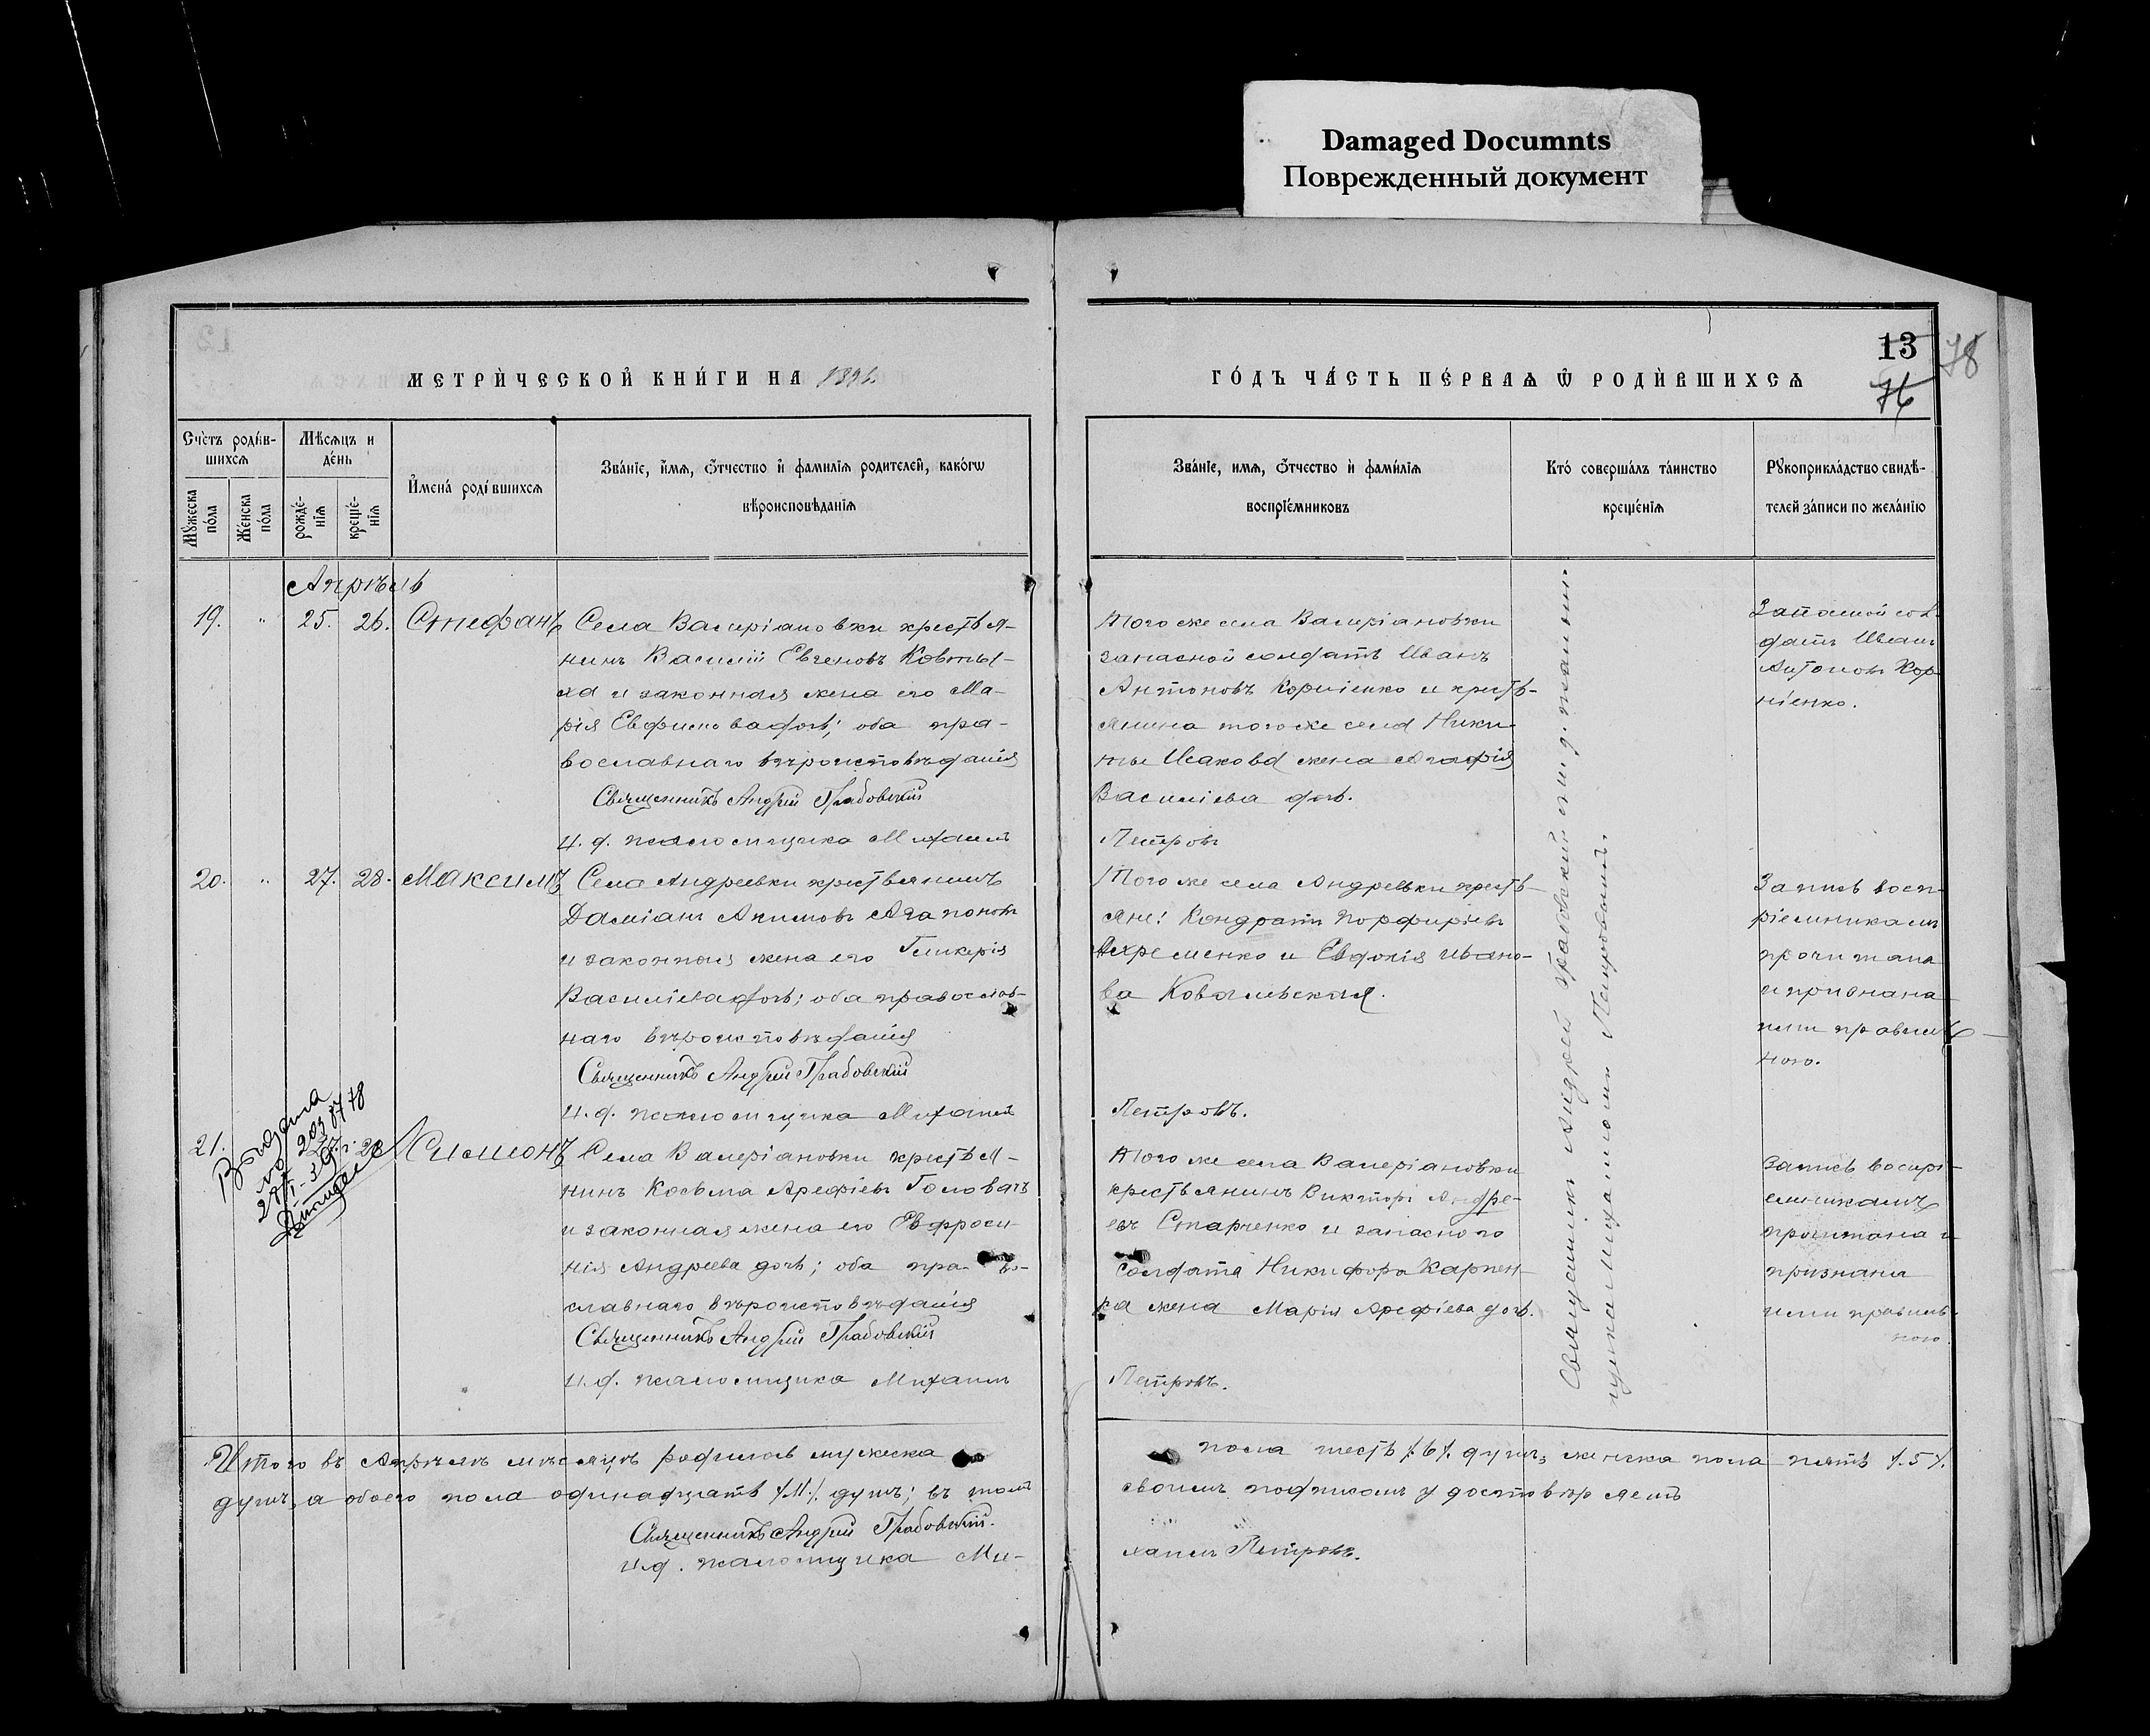 Damaged Documnts
Поврежденный документ
13
78
76
МЕТРИ́ЧЕСКОЙ КНИ́ГИ НА
ГО́ДЪ ЧА́СТЬ ПЕ́РВАѦ Ѡ҆ РОДИ́ВШИХСѦ
Сче́тъ роди́в-
шихсѧ
Мѣ́сѧцъ и
де́нь
И҆мена̀ роди́вшихсѧ
Зва́нїе, и҆́мѧ, ѻ҆́тчество и҆ фами́лїѧ роди́телей, како́гѡ
вѣроисповѣ́данїѧ
Мꙋ́жеска
по́ла
Же́нска
по́ла
рожде́-
нїѧ
креще́-
нїѧ
Зва́нїе, имѧ, ѻ҆́тчество и҆ фами́лїѧ
воспрїе́мниковъ
Кто́ соверша́лъ та́инство
креще́нїѧ
Рꙋкоприкла́дство свидѣ́-
телей за́писи по жела́нїю
Апрѣль
19. " 25. 26. Стефанъ Села Валеріановки крестья-
нинъ Василій Евгеновъ Ковты-
ха и законная жена его Ма-
рія дочь; оба пра-
вославнаго вѣроисповѣданія
Священникъ Андрей Грабовскій
и. д. псаломщика Михаилъ
Тогоже села Валеріановки
запасной солдатъ Иванъ
Антоновъ Корніенко и кресть-
янина тогоже села Ники-
ты Исакова жена Агафія
Василіева дочь.
Петровъ
Запасной сол-
датъ Иванъ
Антоновъ Кор-
ніенко.
20. " 27. 28. Максимъ Села Андреевки крестьянинъ
Даміанъ Акимовъ Агапоновъ
и законная жена его Гликерія
Василіева дочь; оба православ-
наго вѣроисповѣданія
Священникъ Андрей Грабовскій
и. д. псаломщика Михаилъ
Тогоже села Андреевки кресть-
яне: Кондратъ Порфиріевъ
Ахременко и Евдокія Ивано-
ва Ковалевская.
Петровъ.
Запись восп-
ріемникамъ
прочитана
и признана
ими правиль-
ною.
Выдана
21. 28 Симеонъ Села Валеріановки крестья-
нинъ Косьма Арефіевъ Головачъ
и законная жена его Евфроси-
нія Андреева дочь; оба право-
славнаго вѣроисповѣданія
Священникъ Андрей Грабовскій
и. д. псаломщика Михаилъ
Тогоже села Валеріановки
крестьянинъ Викторъ Андре-
евъ Старченко и запасного
солдата Никифора Карпен-
ка жена Марія Арефіева дочь.
Петровъ.
Запись воспрі-
емникамъ
прочитана и
признана
ими правиль-
ною.
Священникъ Андрей Грабовскій съ и. д. псалом-
щика Михаиломъ Петровымъ.
Итого въ Апрѣлѣ мѣсяцѣ родилось мужеска
пола шесть /.6/. душъ, женска пола пять /.5/.
душъ, а обоего пола одинадцать /.11./. душъ; въ томъ
своимъ подписомъ удостовѣряемъ
Священникъ Андрей Грабовскій.
и. д. псаломщика Ми-
хаилъ Петровъ.